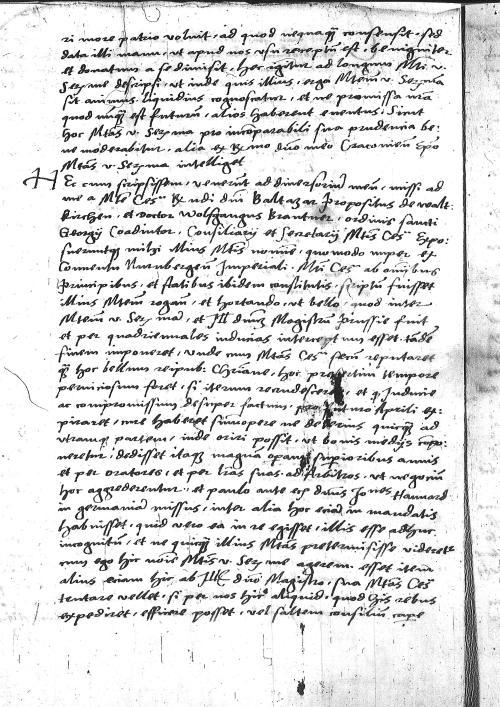 ri more patrio voluit, ad quod nequaq̄ consensit, sed
data illi manu, vt apud nos vsu receptū est, benigniter
et donatum a se dimisit, hec igitur ad longum Mti v.
Serme descripsi, vt inde quis illius, erga Mtem v. Serma
sit animus, liquidius cognoscatur, et ne promissa
quod futurū, alios haberent euentus, Sciat
hoc Mtas v. Serma pro incomparabili sua prudencia be
ne moderabitur, alia ex Rmo duo meo Craconien Epo
Mtas v. Serma intelliget
Hec cum scripsissem, venerunt ad diversoriū meū, missi ad
me a Mte Ces Rndi dni Baltazar Propositus de walt
kirchen, et Doctor Wolfgangus Brantner, ordinis sancti
Georgii Coadiutor, Consiliarii et Secretarii Mtis Ces Expo
sueruntq mihi illius Mtis nomie, quomodo nuper ex
Conuentu Nurnbergen Imperiali, Mti Ces ab omibus
Principibus, et statibus ibidem constitutis, scriptū fuisset
illius Mtem rogan, et hortando, vt bello, quod inter
Mtem v. Serma, et Ill dnm Magistrū Prussie fuit
et per quadriennales inducias interceptum esset, tande
finem imponeret, vnde cum Mtas Ces secū reputaret
q hoc bellum reipub: Chriane, hoc tempore
perniciosum foret, si iterum recrudesceret, et q Inducie
ac compromissum desuper factum, Aprili ex
piraret, cure haberet sumopere ne deterius quicq ad
vtramq partem, inde oriri possit, vt bonis medijs
neretur, dedisset itaq magna opam superioribus annis
et per oratores, et per lras suas, ad Arbitros, vt negociū
hoc aggrederentur, et paulo ante dnus Jones Hannard
in germaniam missus, inter alia hoc eciā in mandatis
habuisset, quid vero ea in re egisset, illis esse adhuc
incognitū, et ne quicq illius Mtas pretermisisse videretr
cum ego hic noie Mtis v. Serme agerem, esset item
alius eciam hic, ab Ill dno Magistro, sua Mtas Ces
tentare vellet, si per nos hic aliquid, quod his rebus
expediret, efficere posset, vel saltem consiliū cape